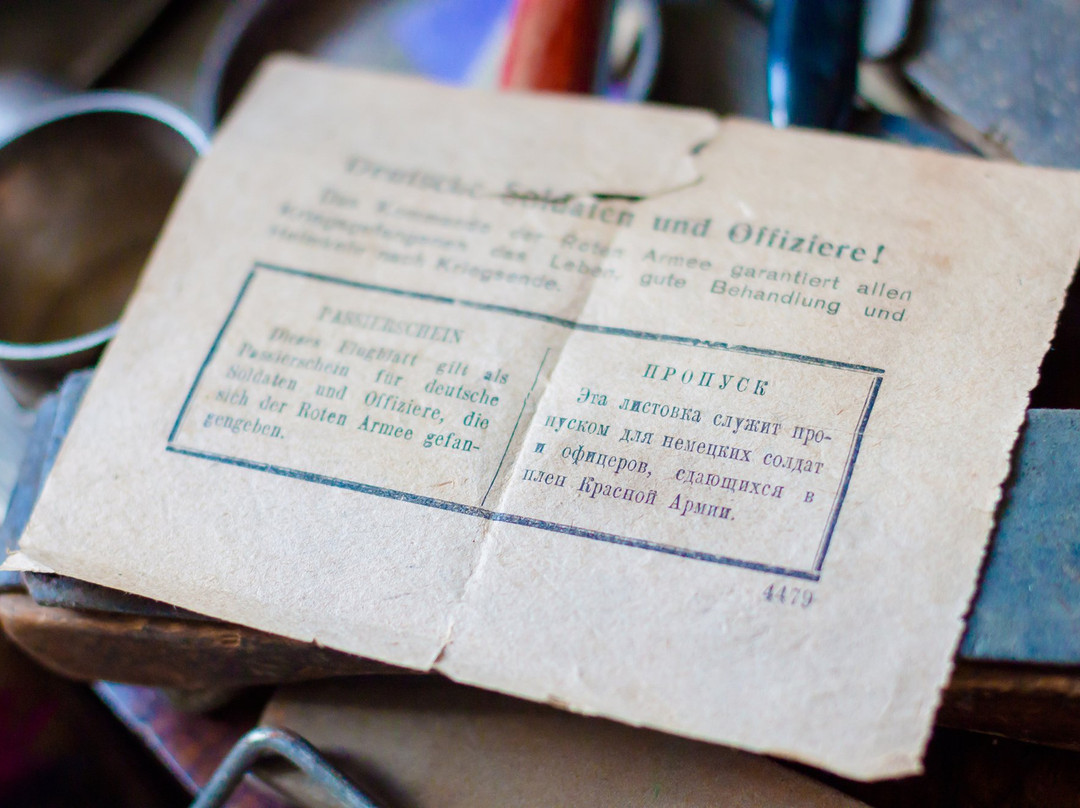 Deutsche Soldaten und Offiziere!
Das Kommando der Roten Armee garantiert allen
Kriegsgefangenen das Leben, gute Behandlung und
Heimkehr nach Kriegsende.
PASSIERSCHEIN
Dieses Flugblatt gilt als
Passierschein für deutsche
Soldaten und Offiziere, die
sich der Roten Armee gefan-
gengeben.
ПРОПУСК
Эта листовка служит про-
пуском для немецких солдат
и офицеров, сдающихся в
плен Красной Армии.
4479